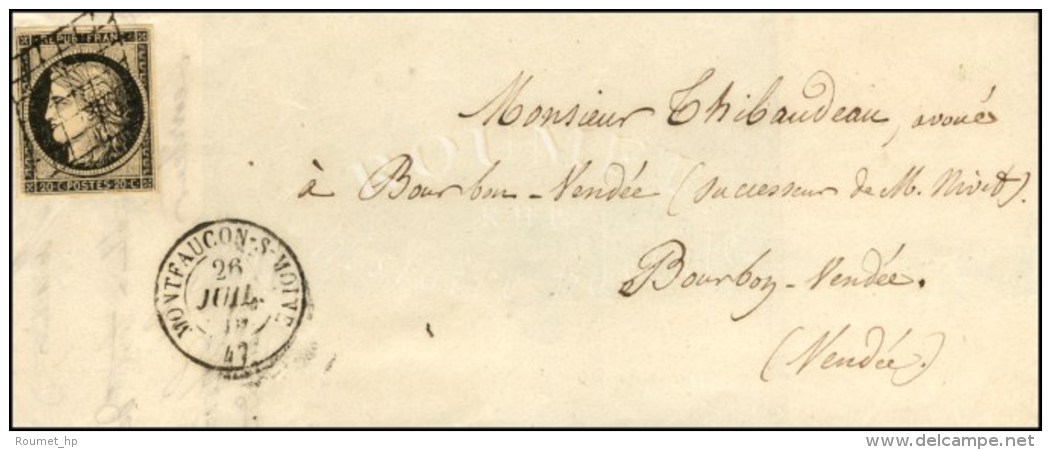 REPUB. FRANC.
20 C POSTES 20 C
Monsieur Thibaudeau, avoué
à Bourbon-Vendée (successeur de M. Nivet).
Bourbon-Vendée.
(Vendée)
MONTFAUCON-S-MOINE
26
JUIL.
47
Roumet_hp
www.delcampe.net